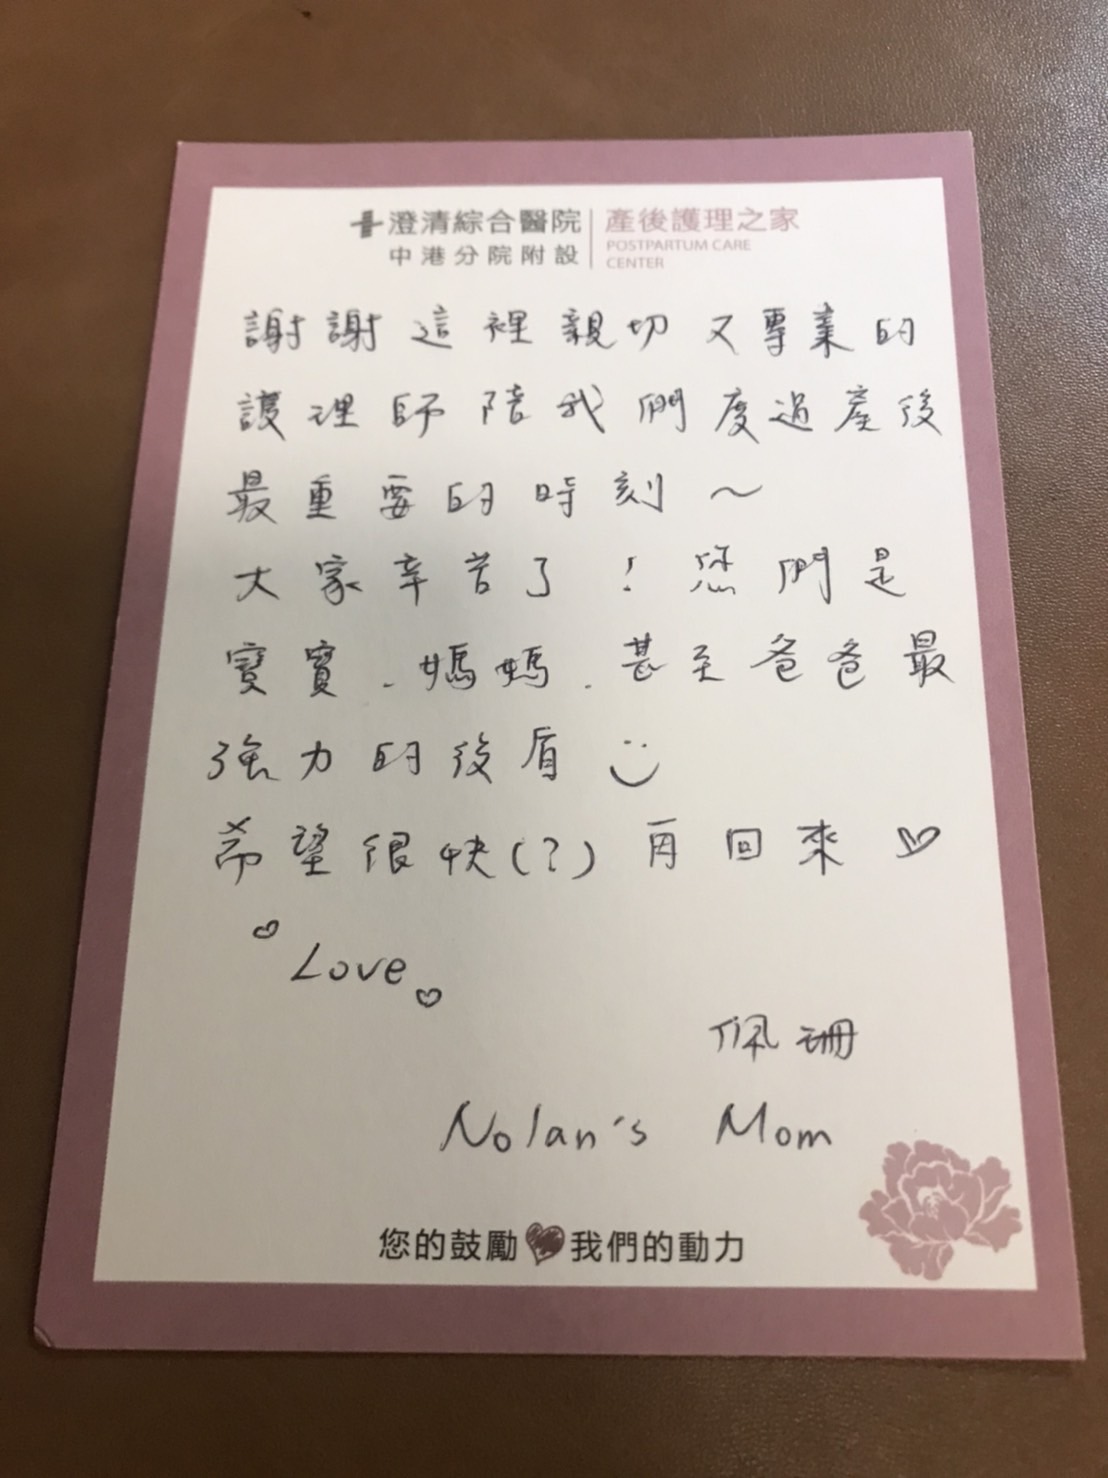 澄清綜合醫院
中港分院附設
產後護理之家
POSTPARTUM CARE
CENTER
謝謝這裡親切又專業的
護理師陪我們度過產後
最重要的時刻～
大家辛苦了！您們是
寶寶、媽媽、甚至爸爸最
強力的後盾
希望很快(?)再回來♡
Love
佩珊
Nolan's Mom
您的鼓勵 我們的動力